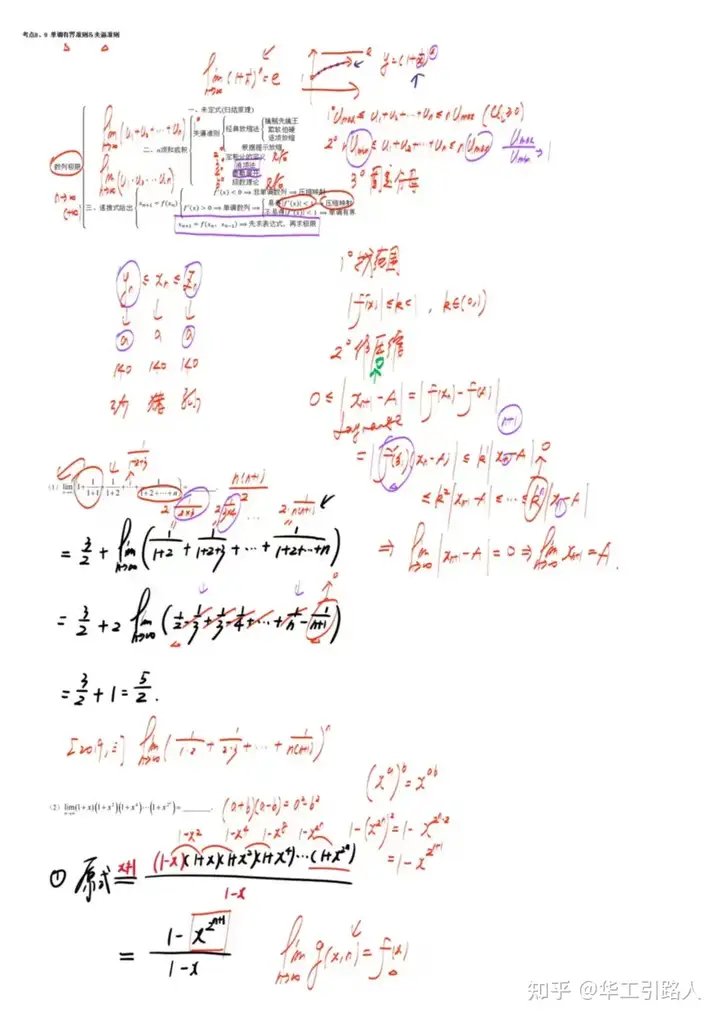 考点8、9 单调有界准则&夹逼准则
lim n→∞ (1+1/n)^n = e
数列极限
n→∞
(+∞)
一、未定式(归结原理)
二、n项和底积
lim n→∞ (u₁+u₂+⋯+uₙ)
lim n→∞ (u₁·u₂⋯uₙ)
夹逼准则
经典放缩法
根据提示放缩
定积分的定义
级数理论
三、递推式给出
xₙ₊₁=f(xₙ)
f'(x)<0 ⟹ 非单调数列 ⟹ 压缩映射
f'(x)>0 ⟹ 单调数列 ⟹
压缩映射
⟹ 单调有界
xₙ₊₁=f(xₙ, xₙ₋₁) ⟹ 先求表达式、再求极限
1° uₘₐₓ ≤ u₁+u₂+⋯+uₙ ≤ n uₘₐₓ (uᵢ≥0)
2° n uₘᵢₙ ≤ u₁+u₂+⋯+uₙ ≤ n uₘₐₓ uₘₐₓ/uₘᵢₙ → 1
yₙ ≤ xₙ ≤ zₙ
↓ ↓ ↓
a a a
140 140 140
1° 找范围
|f'(x)| ≤ k < 1, k∈(0,1)
2° 作压缩
0 ≤ |xₙ₊₁-A| = |f(xₙ)-f(A)|
Lagrange
= |f'(ξ)(xₙ-A)| ≤ k|xₙ-A|
≤ k²|xₙ₋₁-A| ≤ ⋯ ≤ kⁿ|x₁-A|
⟹ lim n→∞ |xₙ₊₁-A| = 0 ⟹ lim n→∞ xₙ₊₁ = A.
(1) lim n→∞ (1+1/(1+1)+1/(1+2)+⋯+1/(1+2+⋯+n))=______.
n(n+1)/2
= 3/2 + lim n→∞ (1/(1+2)+1/(1+2+3)+⋯+1/(1+2+⋯+n))
= 3/2 + 2 lim n→∞ (1/2-1/3+1/3-1/4+⋯+1/n-1/(n+1))
= 3/2 + 1 = 5/2.
[2019,三] lim n→∞ (1/(1·2)+1/(2·3)+⋯+1/(n(n+1)))ⁿ
(x^a)^b = x^(ab)
(2) lim n→∞ (1+x)(1+x²)(1+x⁴)⋯(1+x^(2^n))=______.
(a+b)(a-b)=a²-b²
1-x² 1-x⁴ 1-x⁸ 1-x^(2^n)
1-(x^(2^n))² = 1-x^(2^n·2)
= 1-x^(2^(n+1))
① 原式 x≠1 = (1-x)(1+x)(1+x²)(1+x⁴)⋯(1+x^(2^n)) / (1-x)
= (1-x^(2^(n+1)))/(1-x)
lim n→∞ g(x,n) = f(x)
知乎 @华工引路人